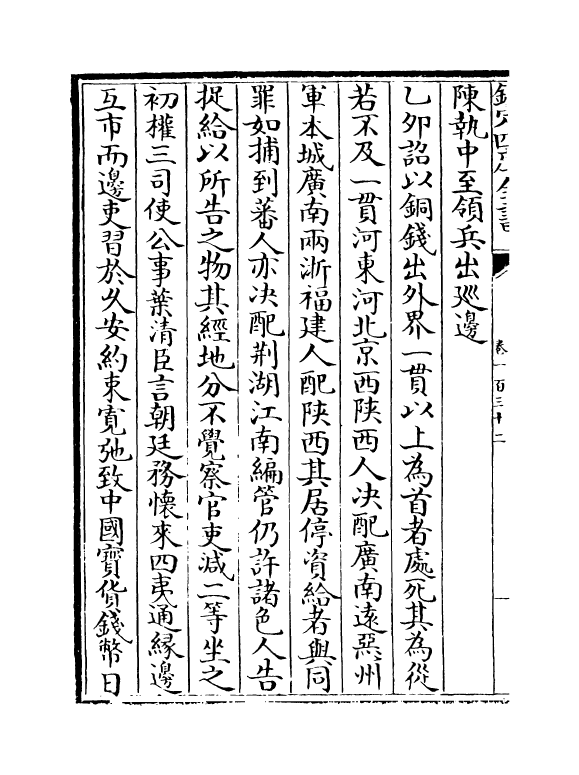 欽定四庫全書
卷一百三十二
陳執中至領兵出廵邊
乙夘詔以銅錢出外界一貫以上為首者處死其為從
若不及一貫河東河北京西陝西人决配廣南逺惡州
軍本城廣南兩浙福建人配陝西其居停資給者與同
罪如捕到蕃人亦决配荆湖江南編管仍許諸色人告
捉給以所告之物其經地分不覺察官吏減二等坐之
初權三司使公事葉清臣言朝廷務懷來四夷通縁邊
互市而邊吏習於久安約束寛弛致中國寳貨錢幣日